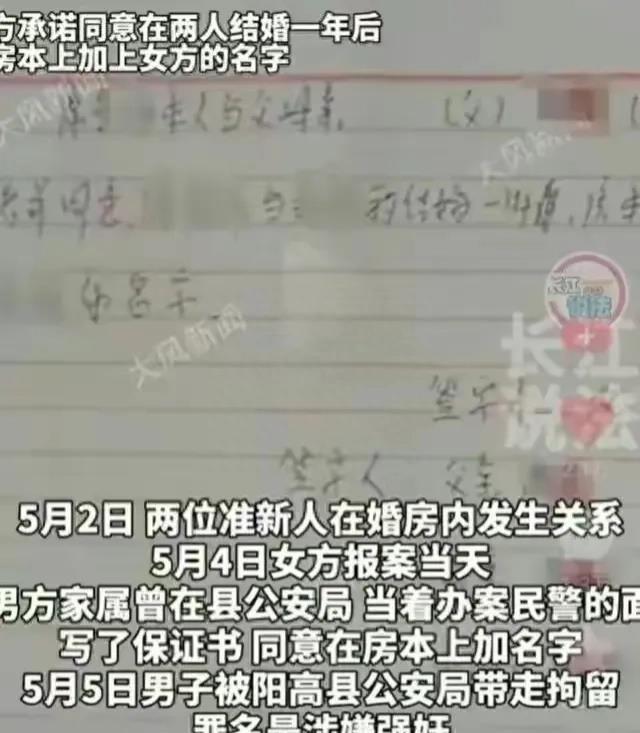 方承诺同意在两人结婚一年后
房本上加上女方的名字
大风新闻
本人与父母亲 (父)
大风新
同意
的结婚一年后,房本
的名字
大风新闻
长江
说法
长江
说法
签字
签字人 父亲
5月2日 两位准新人在婚房内发生关系
5月4日女方报案当天
男方家属曾在县公安局 当着办案民警的面
写了保证书 同意在房本上加名字
5月5日男子被阳高县公安局带走拘留
罪名是涉嫌强奸